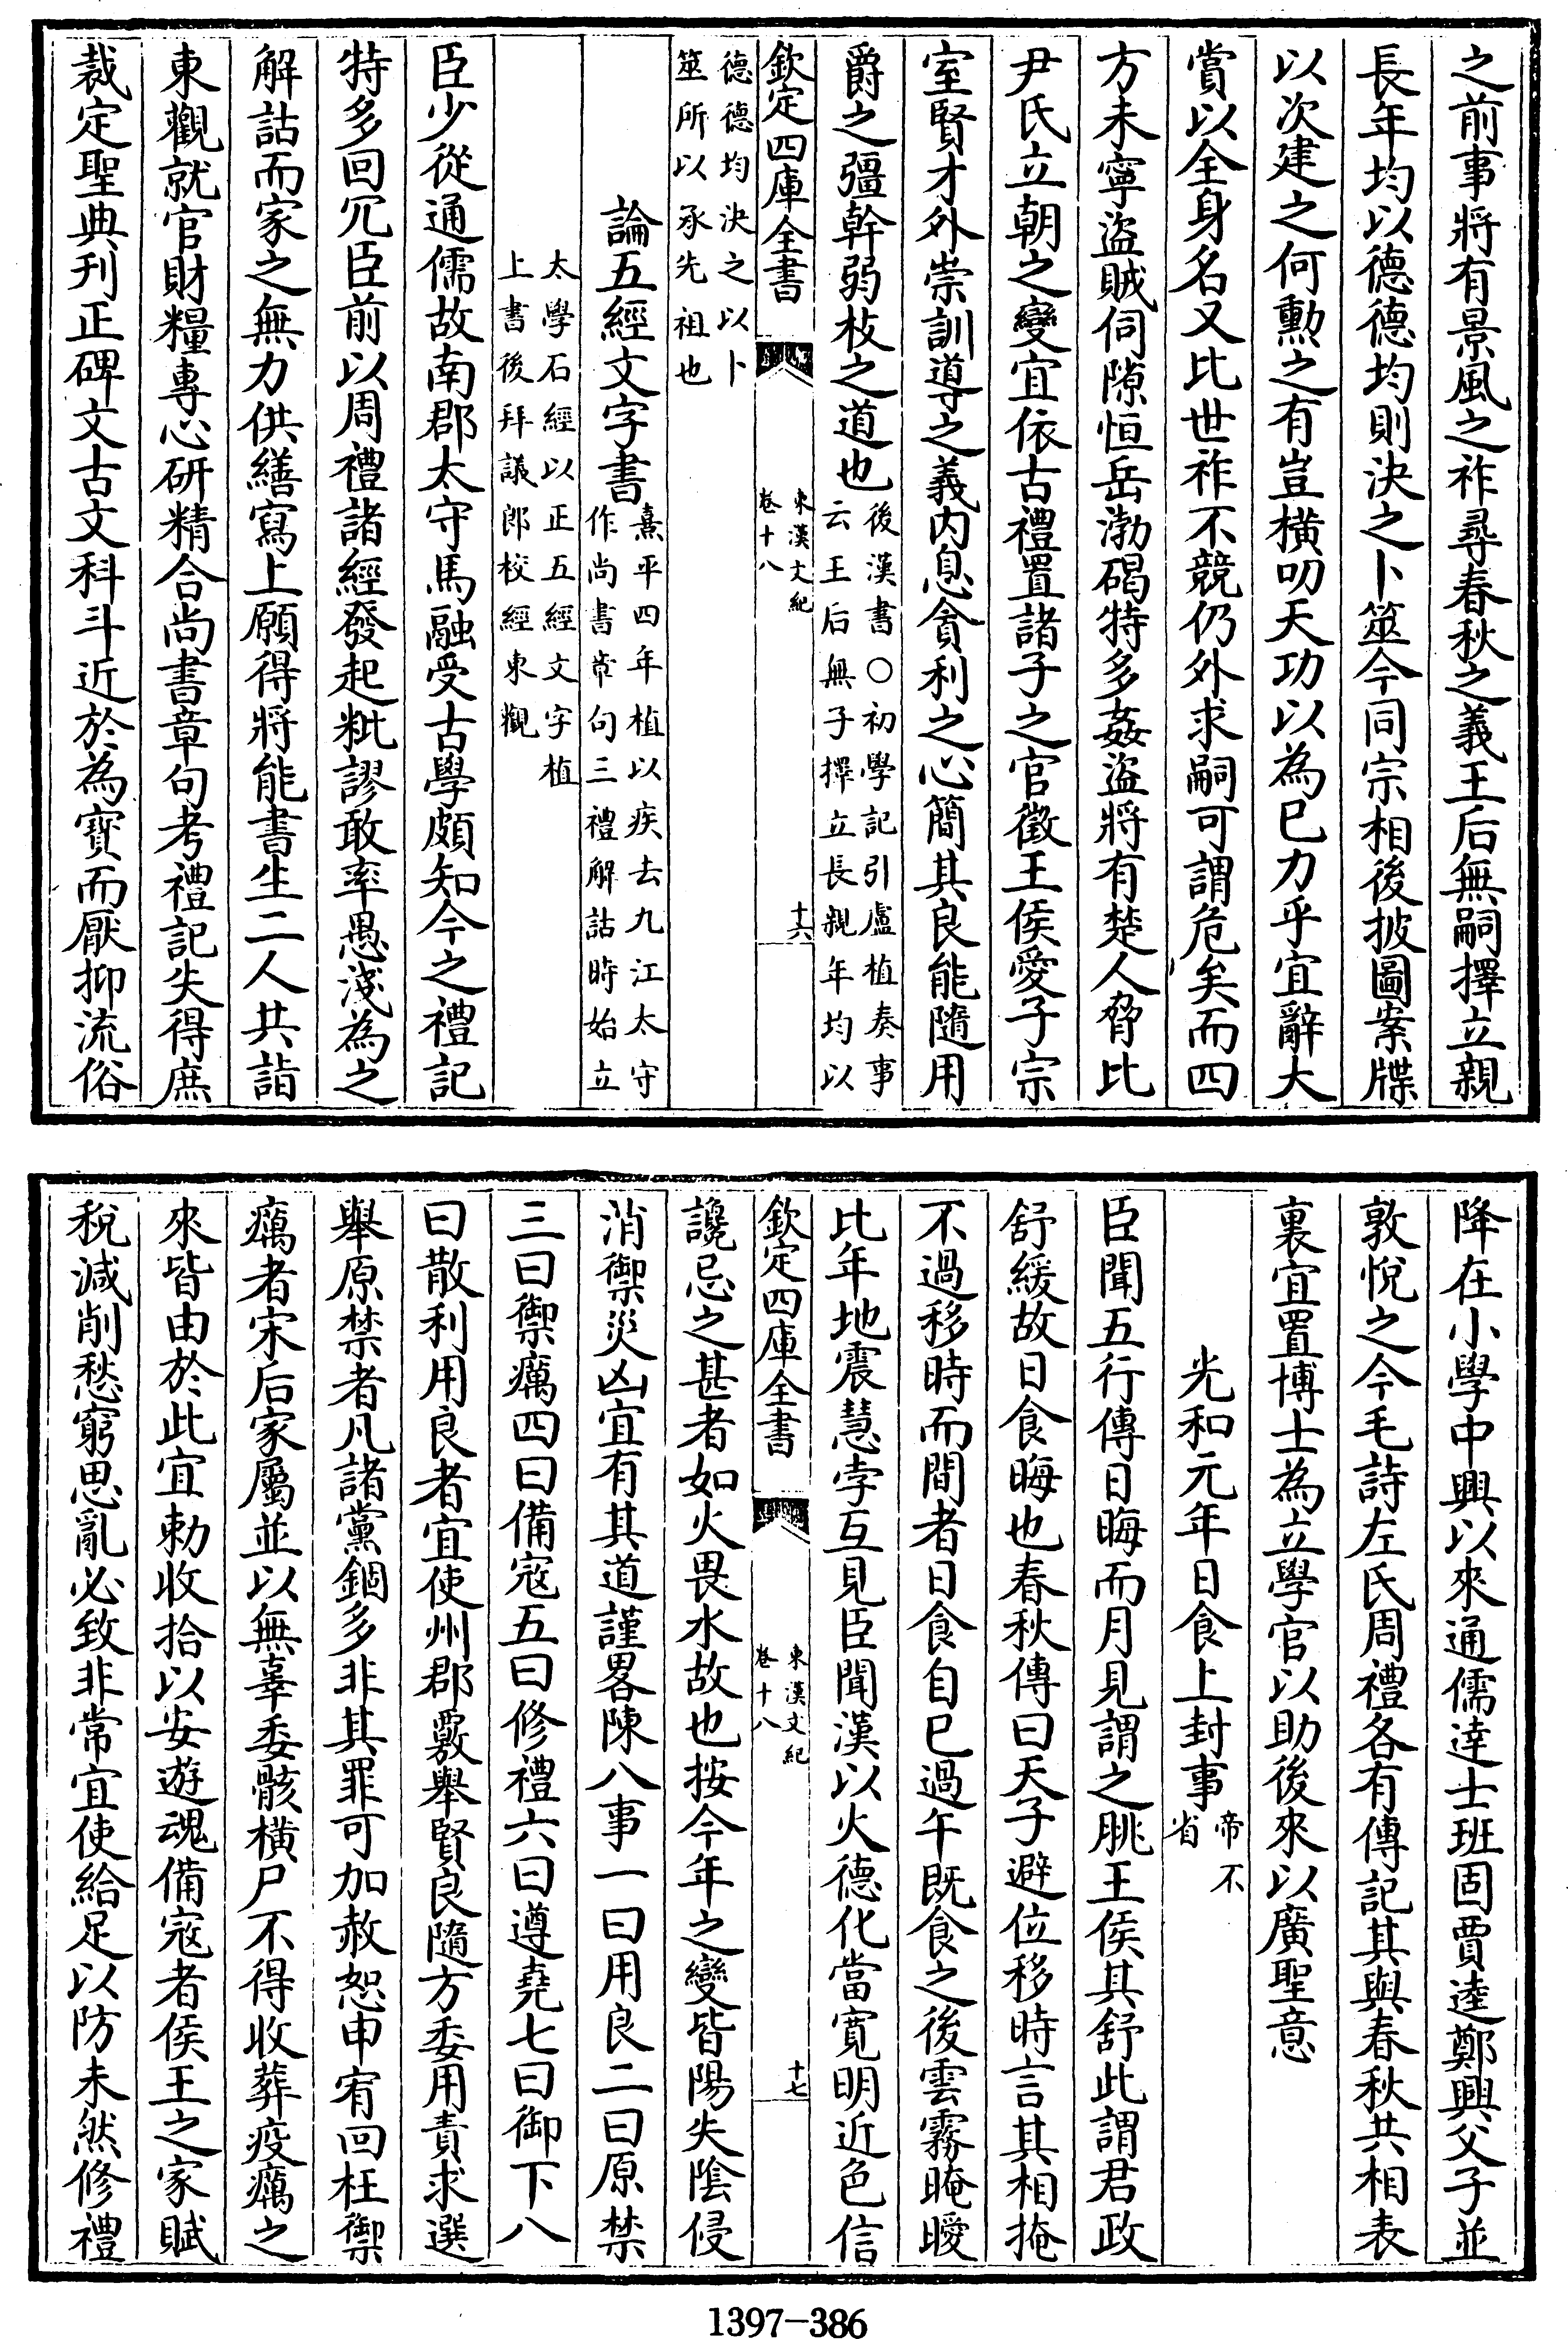 之前事將有景風之祚尋春秋之義王后無嗣擇立親
長年均以德德均則決之卜筮今同宗相後披圖案牒
以次建之何勳之有豈橫叨天功以為已力乎宜辭大
賞以全身名又比世祚不競仍外求嗣可謂危矣而四
方未寧盜賊伺隙恒岳渤碣特多姦盜將有楚人脅比
尹氏立朝之變宜依古禮置諸子之官徵王侯愛子宗
室賢才外崇訓導之義内息貪利之心簡其良能隨用
爵之彊幹弱枝之道也
後漢書○初學記引盧植奏事
云王后無子擇立長親年均以
欽定四庫全書
東漢文紀
卷十八
十六
德德均決之以卜
筮所以承先祖也
論五經文字書
熹平四年植以疾去九江太守
作尚書章句三禮解詁時始立
太學石經以正五經文字植
上書後拜議郎校經東觀
臣少從通儒故南郡太守馬融受古學頗知今之禮記
特多回冗臣前以周禮諸經發起粃謬敢率愚淺為之
解詁而家之無力供繕寫上願得將能書生二人共詣
東觀就官財糧專心研精合尚書章句考禮記失得庶
裁定聖典刋正碑文古文科斗近於為寳而厭抑流俗
降在小學中興以來通儒逹士班固賈逵鄭興父子並
敦悅之今毛詩左氏周禮各有傳記其與春秋共相表
裏宜置博士為立學官以助後來以廣聖意
光和元年日食上封事
帝不
省
臣聞五行傳日晦而月見謂之朓王侯其舒此謂君政
舒緩故日食晦也春秋傳曰天子避位移時言其相掩
不過移時而間者日食自巳過午既食之後雲霧晻曖
比年地震彗孛互見臣聞漢以火德化當寛明近色信
欽定四庫全書
東漢文紀
卷十八
十七
讒忌之甚者如火畏水故也按今年之變皆陽失陰侵
消禦災凶宜有其道謹畧陳八事一曰用良二曰原禁
三曰禦癘四曰備寇五曰修禮六曰遵堯七曰御下八
曰散利用良者宜使州郡覈舉賢良隨方委用責求選
舉原禁者凡諸黨錮多非其罪可加赦恕申宥回枉禦
癘者宋后家屬並以無辜委骸橫尸不得收葬疫癘之
來皆由於此宜勅收拾以安遊魂備寇者侯王之家賦
稅減削愁窮思亂必致非常宜使給足以防未然修禮
1397-386